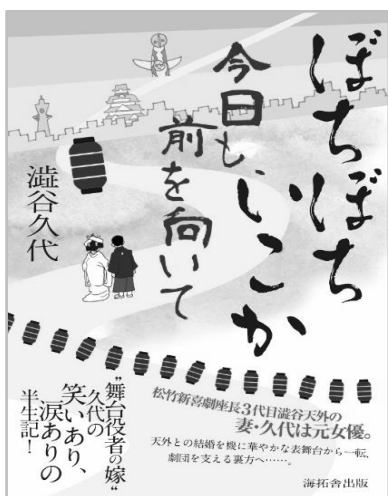 ぼちぼち
いこか
今日も、
前を向いて
澁谷久代
“舞台役者の嫁”
久代の
笑いあり、
涙ありの
半生記！
松竹新喜劇座長3代目澁谷天外の
妻・久代は元女優。
天外との結婚を機に華やかな表舞台から一転、
劇団を支える裏方へ……。
海拓舎出版